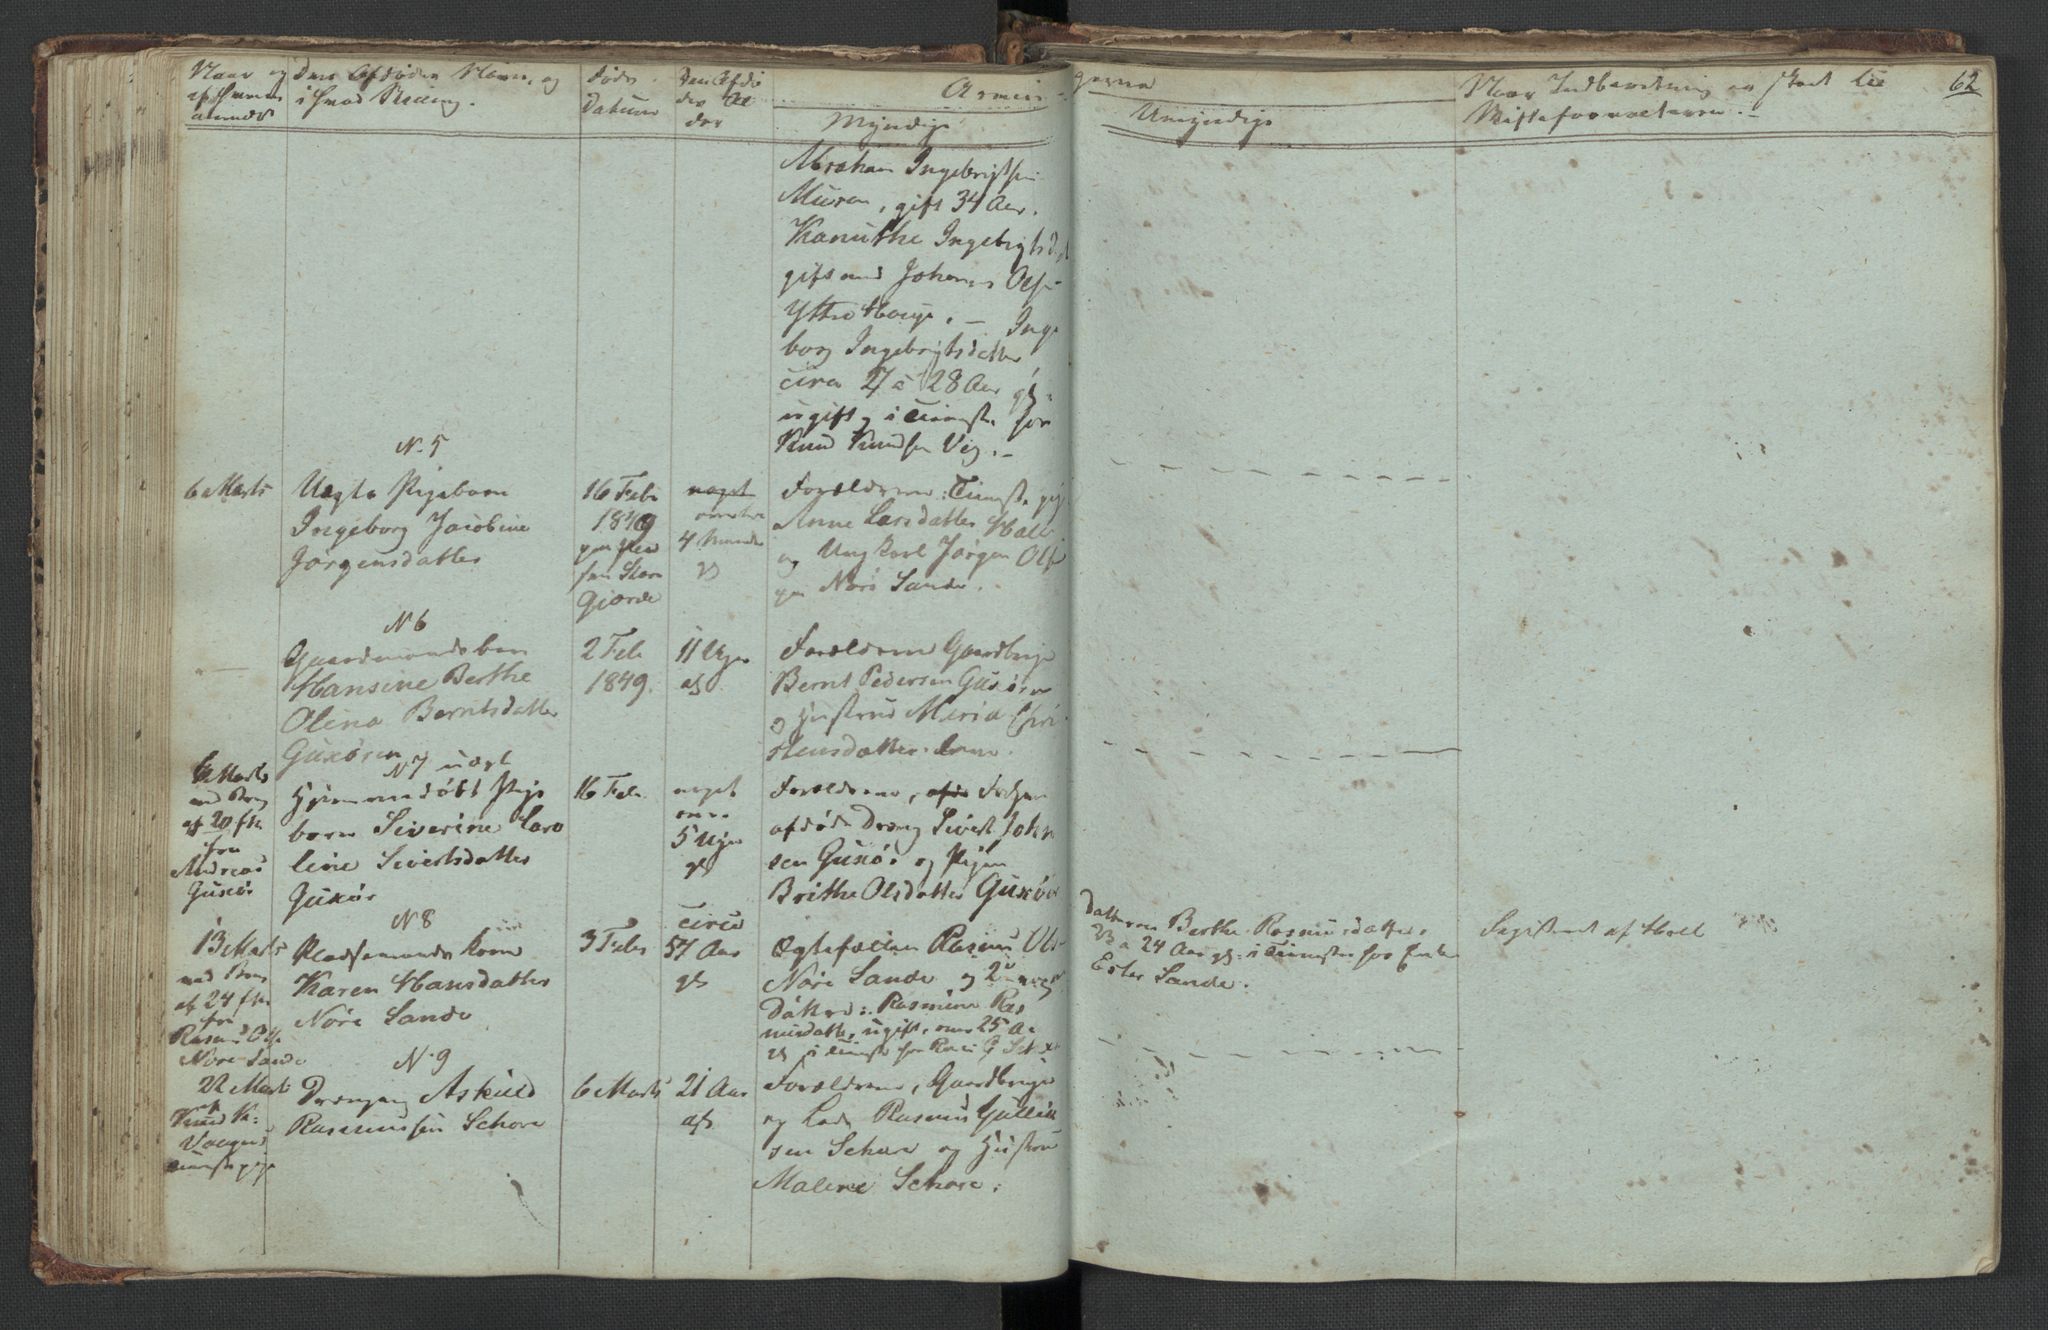 Naar og
af hvem
anmeldt
Den Afdødes Navn, og
i hvad Stilling.
Døds
Datum
Den Afdø
des Al
der
Arvin-
gerne
Myndige
Umyndige
Naar Indberetning er skeet til
Skifteforvalteren.-
62
Abraham Ingebrigtsen
Muren, gift 34 Aar.
Kanuthe Ingebrigtsd.
gift med Johannes Ols-
Yttre Houge. - Inge
borg Ingebrigtsdatter
circa 27 a 28 Aar gl:
ugift, i Tieneste hos
Knud Knudsen Vig.-
N. 5
6 Marts
Uægte Pigebarn
Ingeborg Jacobine
Jørgensdatter
16 Feb:
1849
paa
Gjørde
noget
over
4 Maaneder
gl
Forældrene: Tieneste pige
Anne Larsdatter
og Ungkarl Jørgen Ols
paa Nøre Sande.
N 6
Gaardmandsbarn
Hansine Berthe
Olina Berntsdatter
Guxøren
2 Feb
1849.
11 Uger
gl
Forældrene Gaardbruger
Bernt Pedersen Guxøren
og Hustrue Maria Chri
stensdatter.
N 7 uægt
6 Marts
med Brev
af 20 f.M.
fra
Andreas
Guxør
Hjemmedøbt Pige
barn Siverine Caro
line Sivertsdatter
Guxør
16 Feb.
noget
over
5 Uger
gl
Forældrene,
afdøde Dreng Sivert John
sen Guxør og Pigen
Brithe Olsdatter Guxør
N 8
13 Marts
med Brev
af 24 f.M.
fra
Rasmus Ols
Nøre Sande
Pladsemands Kone
Karen Hansdatter
Nøre Sande
3 Feb:
circa
57 Aar
gl
Ægtefællen Rasmus Ols-
Nøre Sande og 2
Døttre: Rasmine Ras
musdatter, ugift, over 25 A.
gl i Tieneste hos
Datteren Berthe Rasmusdatter
23 a 24 Aar gl: i Tieneste hos Enke
Ester Sande.
Segistemt af Holt
N. 9
22 Marts
af
Knud K:
Vaagnes
Tieneste pige
Drengen Askild
Rasmussen Schore
6 Marts
21 Aar
gl
Forældrene, Gaardbruger
og Lods Rasmus Gullik
sen Schore og Hustrue
Malene Schore.